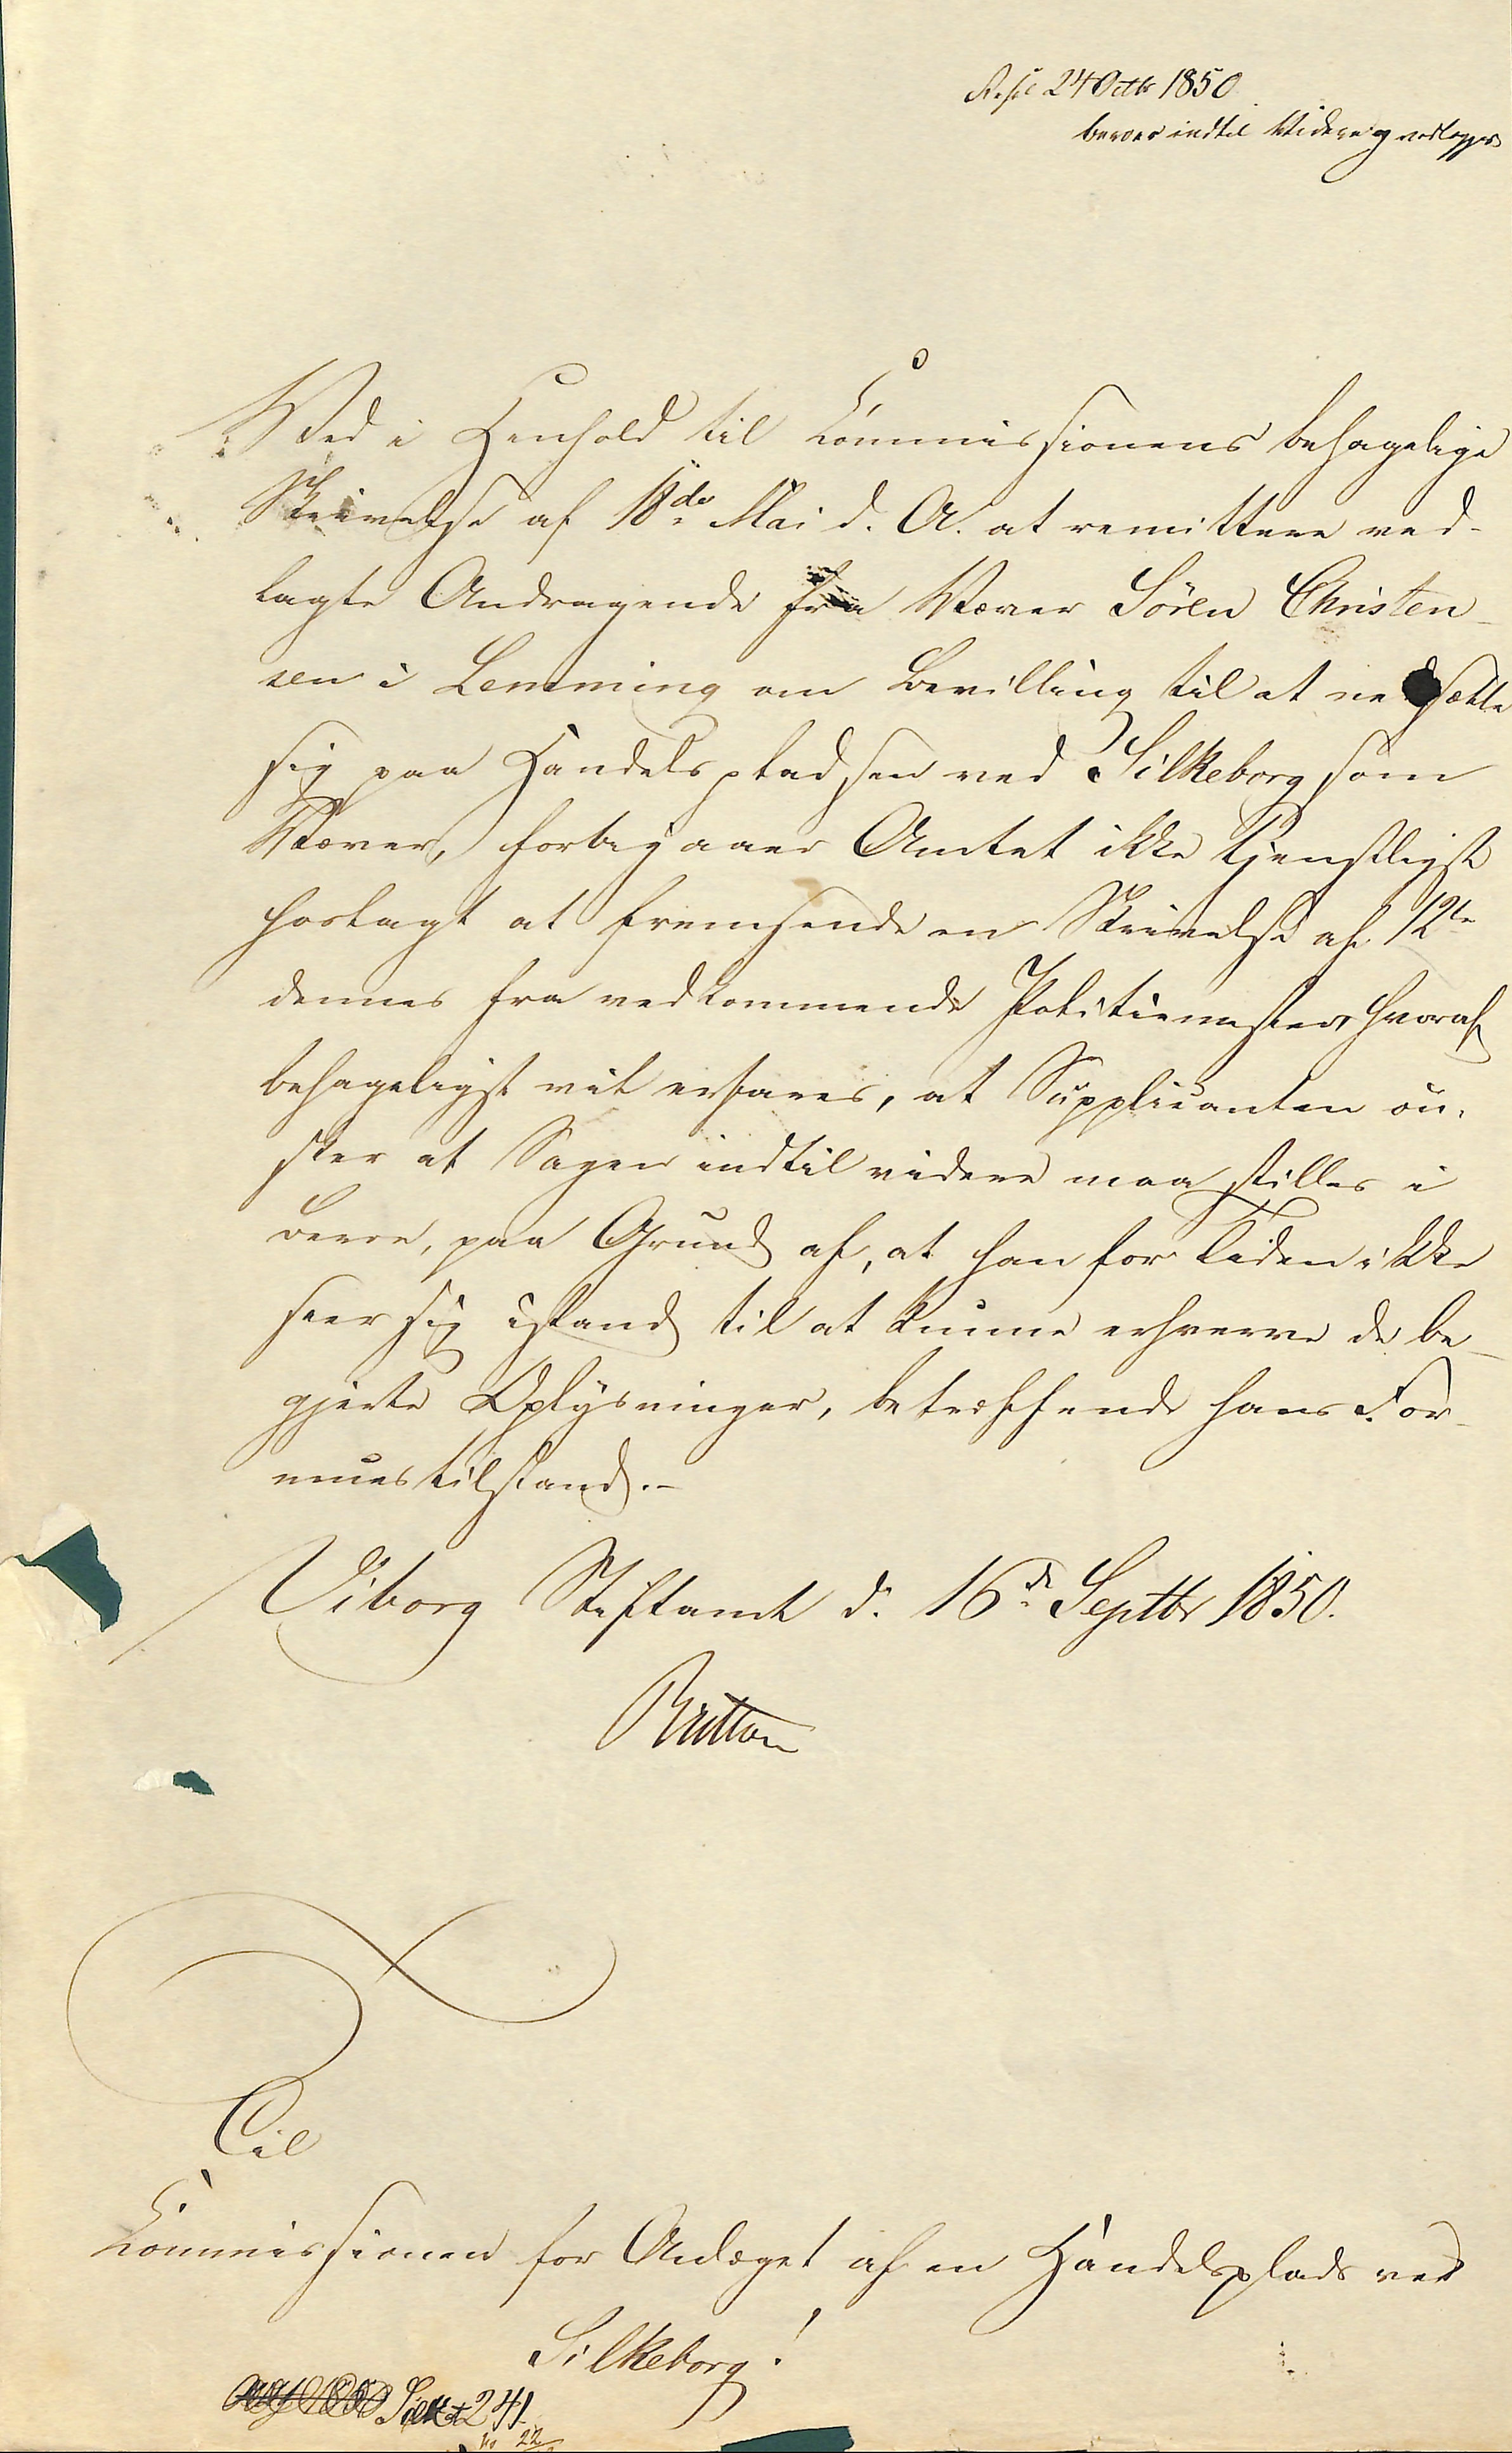 Resol 24 Octbr 1850
beroer indtil Videre og vedlægges
Ved i Henhold til Commissionens behagelige
Skrivelse af 18de Mai d. A. at remittere ved-
lagte Andragende fra Væver Sören Christen-
sen i Lemming om Bevilling til at nedsætte
sig paa Handelspladsen ved Silkeborg som
Væver, forbigaaer Amtet ikke tjenstligst
hoslagt at fremsende en Skrivelse af 12te
dennes fra vedkommende Politiemester, hvoraf
behageligst vil erfares, at Supplicanten ön-
sker at Sagen indtil videre maa stilles i
Beroe, paa Grund af, at han for Tiden ikke
seer sig istand til at kunne erhverve de be-
gjerte Oplysninger, betræffende hans For-
muestilstand.-
Viborg Stiftamt d. 16de Septbr 1850.
Bretton
Til
Commissionen for Anlæget af en Handelsplads ved
Silkeborg!
241
22